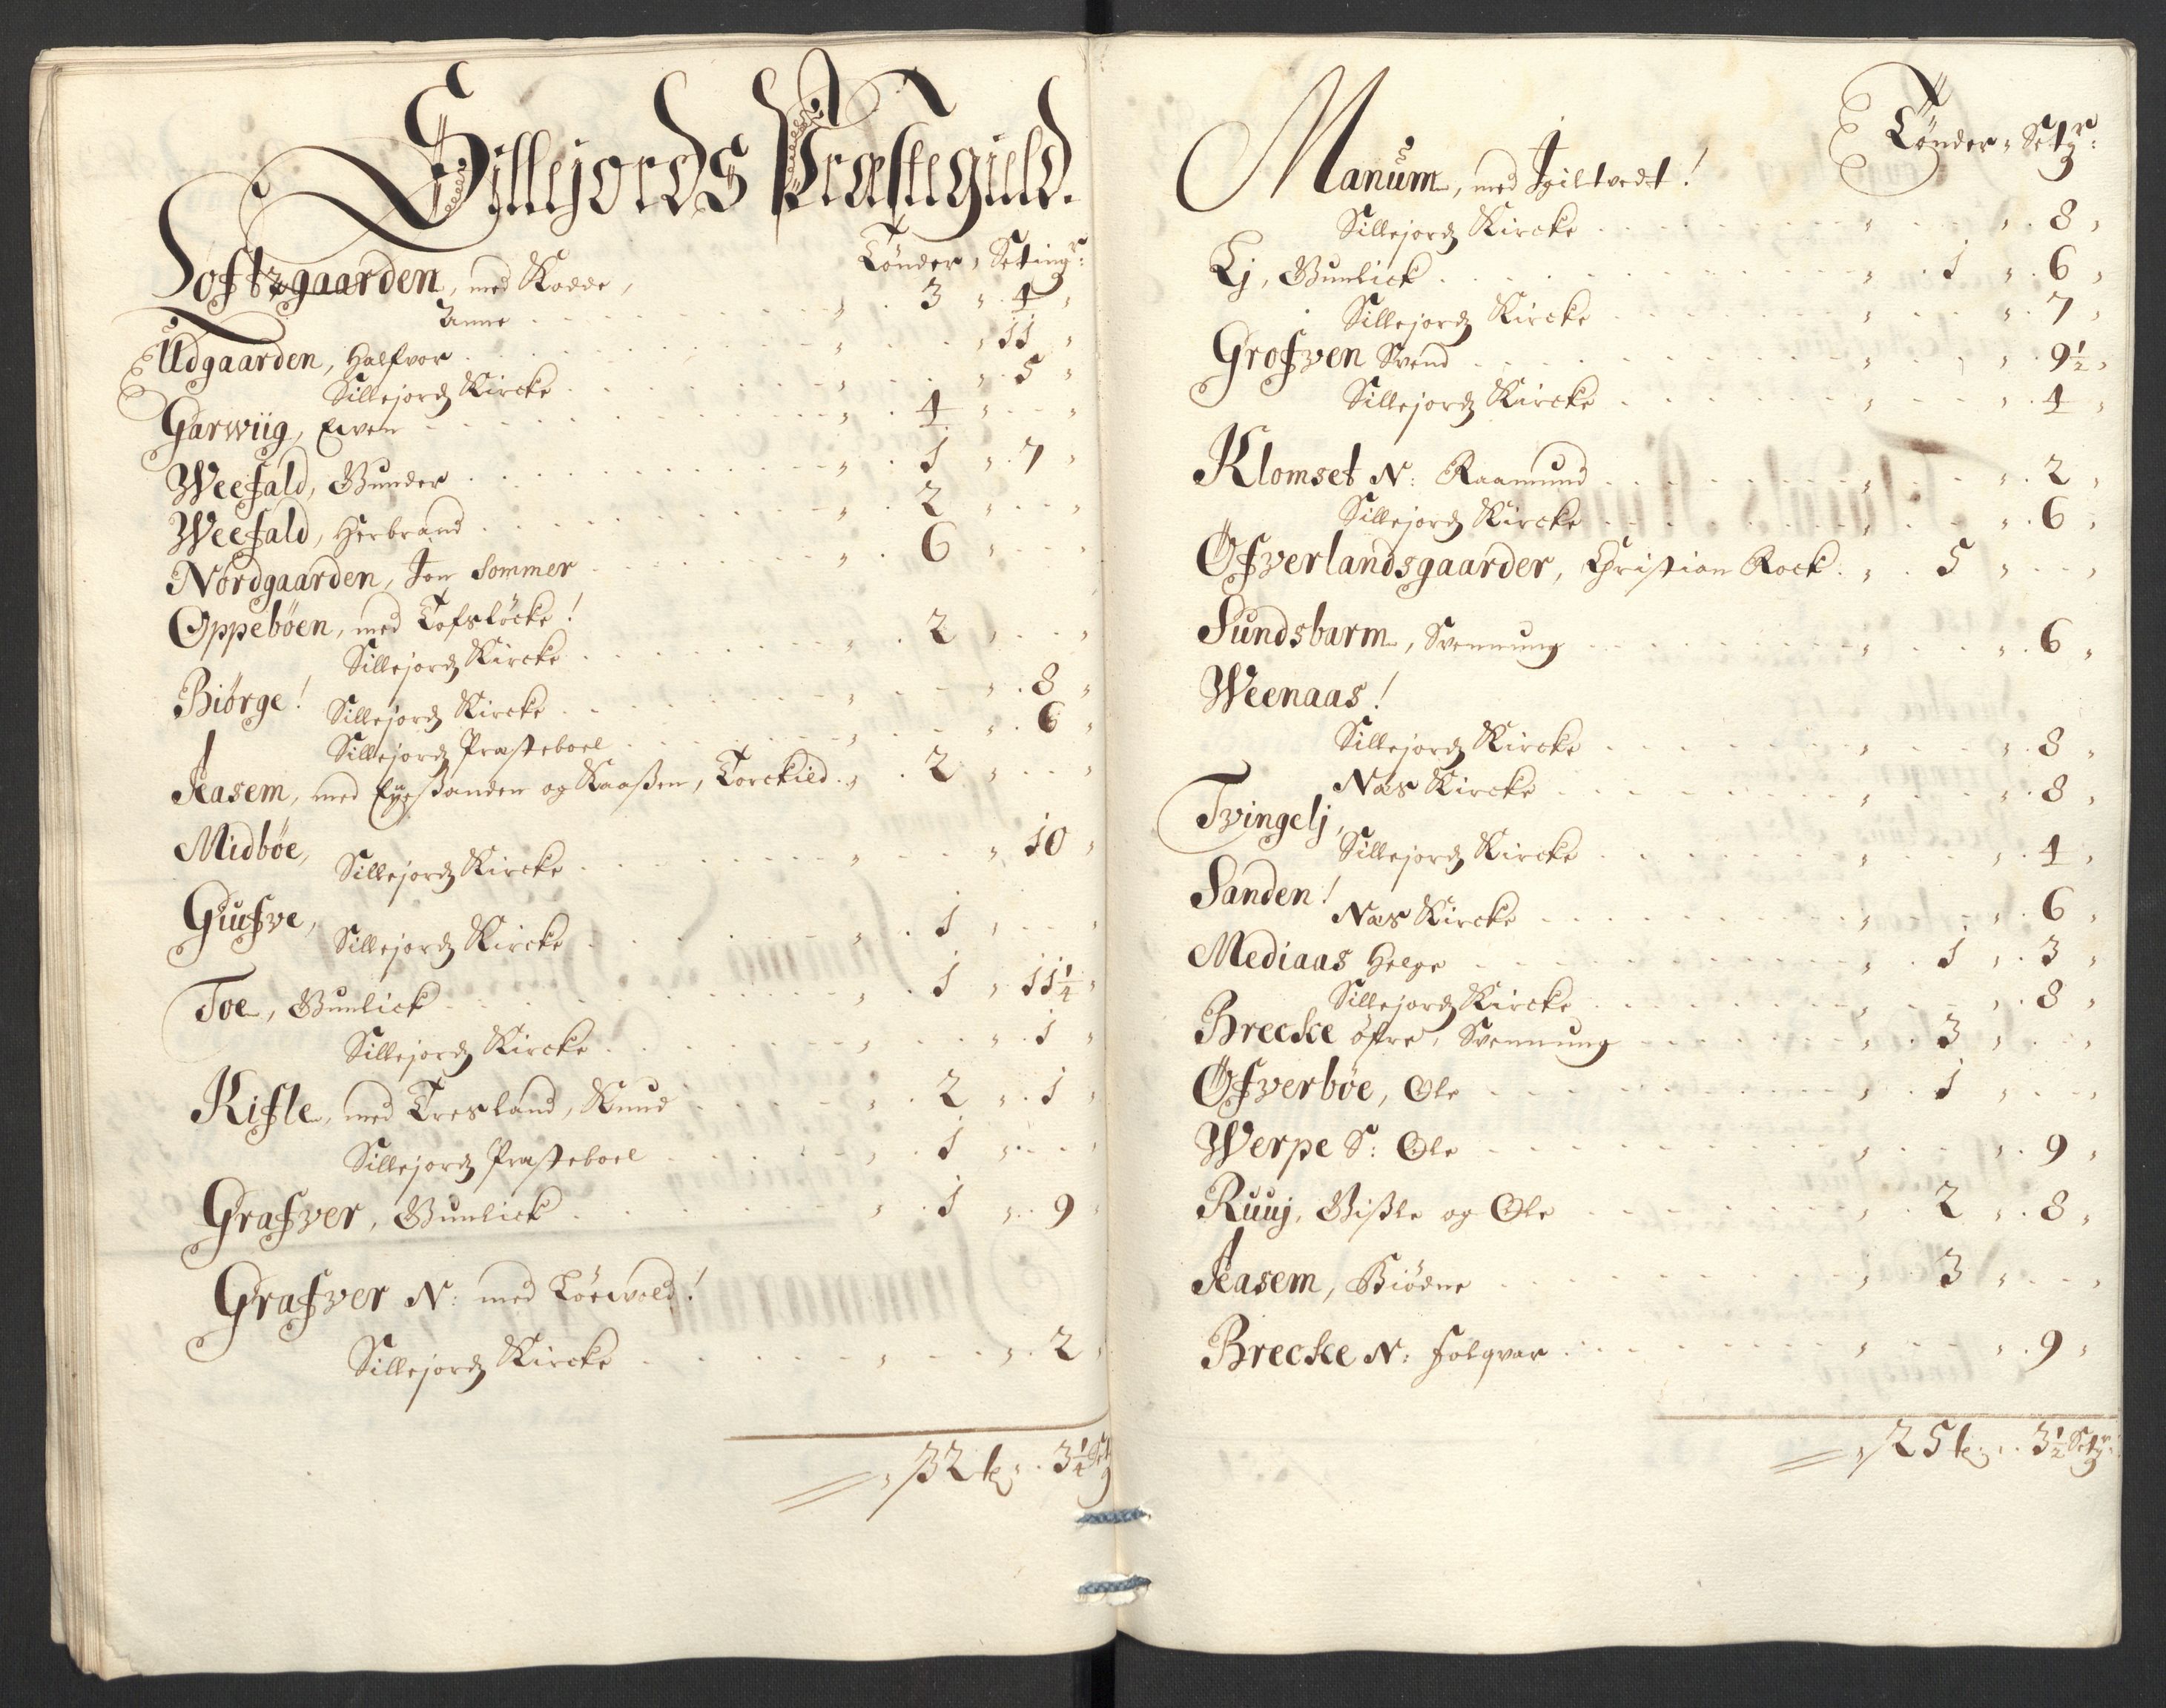 Sillejords Præstegield.
Tønder, Seting.r
Loftzgaarden, med Kodde,
Anne 3 4
Udgaarden, Halfvor 11
Sillejordz Kircke 5
Garwiig, Even 4
Weefald, Gunder 1 7
Weefald, Herbrand 2
Nordgaarden, Jon Sommer 6
Oppebøen, med Tofsløcke!
Sillejordz Kircke 2
Biørge! Sillejordz Kircke 8
Sillejordz Præsteboel 6
Aasem, med og Kaaßen, Torckild 2
Midbøe, Sillejordz Kircke 10
Giufve, Sillejordz Kircke 1
Toe, Gunlick 1 11¼
Sillejordz Kircke 1
Kifle, med Tresland, Knud 2 1
Sillejordz Præsteboel 1
Grafver, Gunlick 1 9
Grafver N: med
Sillejordz Kircke 2
32 t. 3¼ Set
Tønder, Set.r
Manum, med
Sillejordz Kircke 8
Lj, Gunlick 1 6
Sillejordz Kircke 7
Grofven Svend 9½
Sillejordz Kircke 4
Klomset N: Raamund 2
Sillejordz Kircke 6
Øfverlandsgaarder, Christian Rock 5
Sundsbarm, Svennung 6
Weenaas!
Sillejordz Kircke 8
Næs Kircke 8
Tvingelj,
Sillejordz Kircke 4
Sanden! Næs Kircke 6
Mediaas Helge 1 3
Sillejordz Kircke 8
Brecke øfre, Svennung 3
Øfverbøe, Ole 1
Werpe S: Ole 9
Ruuj, Gißle og Ole 2 8
Aasem, Biødne 3
Brecke N: Folqvar 9
25 t. 3½ Set.r